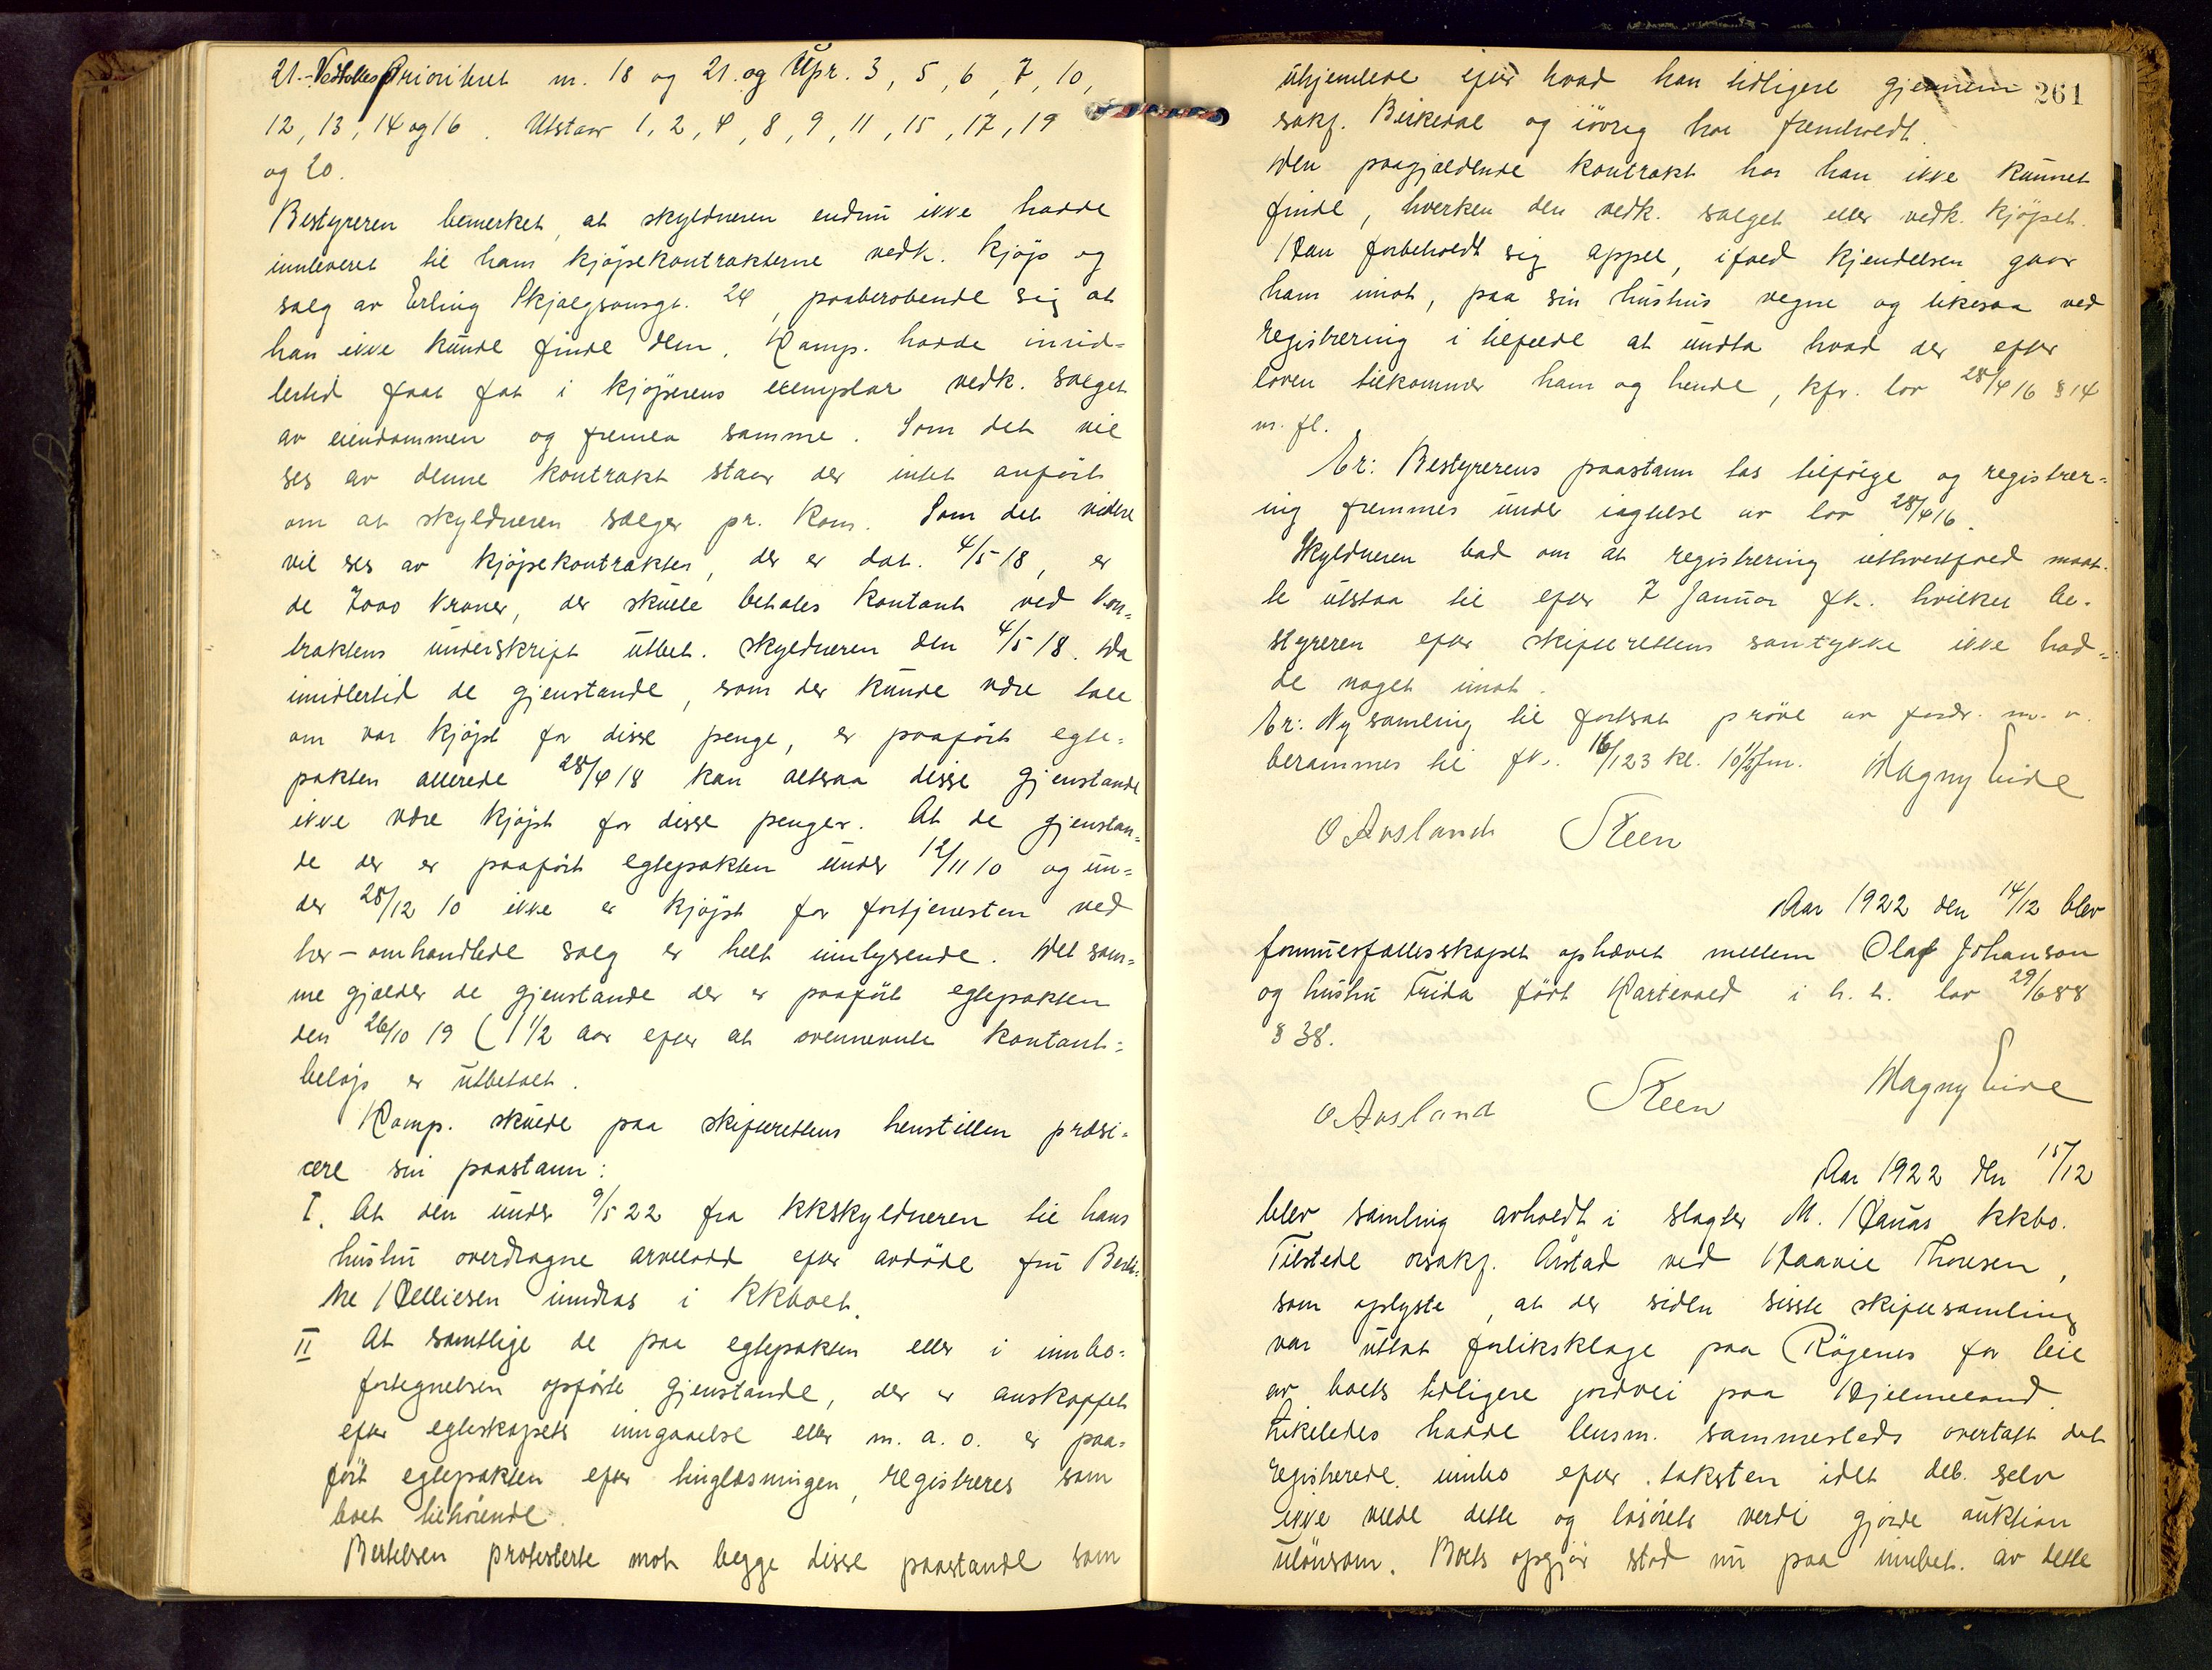 21.- Vedtokes Prioritert nr. 18 og 21. og Upr. 3, 5, 6, 7, 10,
12, 13, 14 og 16. Utstaar 1, 2, 4, 8, 9, 11, 15, 17, 19
og 20.
Bestyreren bemerket, at skyldneren endnu ikke hadde
innleveret til ham kjøpekontrakterne vedk. kjøp og
salg av Erling Skjalgsonsgt. 24, paaberobende sig at
han ikke kunde finde dem. Komp. hadde imid=
lertid faat fat i kjøperens exemplar vedk. salget
av eiendommen og fremla samme. Som det vil
ses av denne kontrakt staar der intet anført
om at skyldneren sælger pr. kom. Som det videre
vil ses av kjøpekontrakten, der er dat. 4/5 18, er
de 7000 kroner, der skulle betales kontant ved kon=
traktens underskrift utbet. skyldneren den 4/5 18. Da
imidlertid de gjenstande, som der kunde være tale
om var kjøpt for disse penge, er paaført egte=
pakten allerede 28/4 18 kan altsaa disse gjenstande
ikke være kjøpt for disse penger. At de gjenstan=
de der er paaført egtepakten under 12/11 10 og un=
der 28/12 10 ikke er kjøpt for fortjenesten ved
her-omhandlede salg er helt innlysende. Det sam=
me gjælder de gjenstande der er paaført egtepakten
den 26/10 19 (1 1/2 aar efter at ovennevnte kontant=
beløp er utbetalt.
Komp. skulde paa skifterettens henstillen præsi=
cere sin paastann:
I. At den under 9/5 22 fra kkskyldneren til hans
hustru overdragne arvelodd efter avdøde fru
Helliesen inndras i kkboet.
II At samtlige de paa egtepakten eller i innbo=
fortegnelsen opførte gjenstande, der er anskaffet
efter egteskapets inngaaelse eller m. a. o. er paa=
ført egtepakten efter tinglæsningen, registreres som
boet tilhørende.
Bertelsen protesterte mot begge disse paastande som
261
uhjemlede efter hvad han tidligere gjennem
sakf. Birkedal og iøvrig har fremholdt.
Den paagjældende kontrakt har han ikke kunnet
finde, hverken den vedk. salget eller vedk. kjøpet.
Han forbeholdt sig appel, ifald kjendelsen gaar
ham imot, paa sin hustrus vegne og likesaa ved
registrering i tilfælde at undta hvad der efter
loven tilkommer ham og hende, kfr. lov 28/4 16 § 14
m. fl.
Er: Bestyrerens paastann tas tilfølge og registrer=
ing fremmes under iagttelse av lov 28/4 16.
Skyldneren bad om at registrering ialhvertfald maat-
te utstaa til efter 7 Januar fk. hvilket be-
styreren efter skifterettens samtykke ikke had=
de noget imot.
Er: Ny samling til fortsat prøve av fordr. m. v.
berammes til fk. 16/1 23 kl. 10 1/2 fm. Magny Eide
O Aasland Steen
Aar 1922 den 14/12 blev
formuesfællesskapet ophævet mellem Olaf Johanson
og hustru Frida født Kartevold i h. t. lov 29/6 88
§ 38.
O Aasland Steen Magny Eide
Aar 1922 den 15/12
blev samling avholdt i slagter M. Hauas kkbo.
Tilstede orsakf. Årstad ved Haavie Thoresen,
som oplyste, at der siden siste skiftesamling
var uttat forliksklage paa Røgenes for leie
av boets tidligere jordvei paa Hjelmeland.
Likeledes hadde lensm. sammesteds overtatt det
registrerede innbo efter taksten idet deb. selv
ikke vilde dette og løsørets verdi gjorde auktion
ulønsom. Boets opgjør stod nu paa innbet. av dette